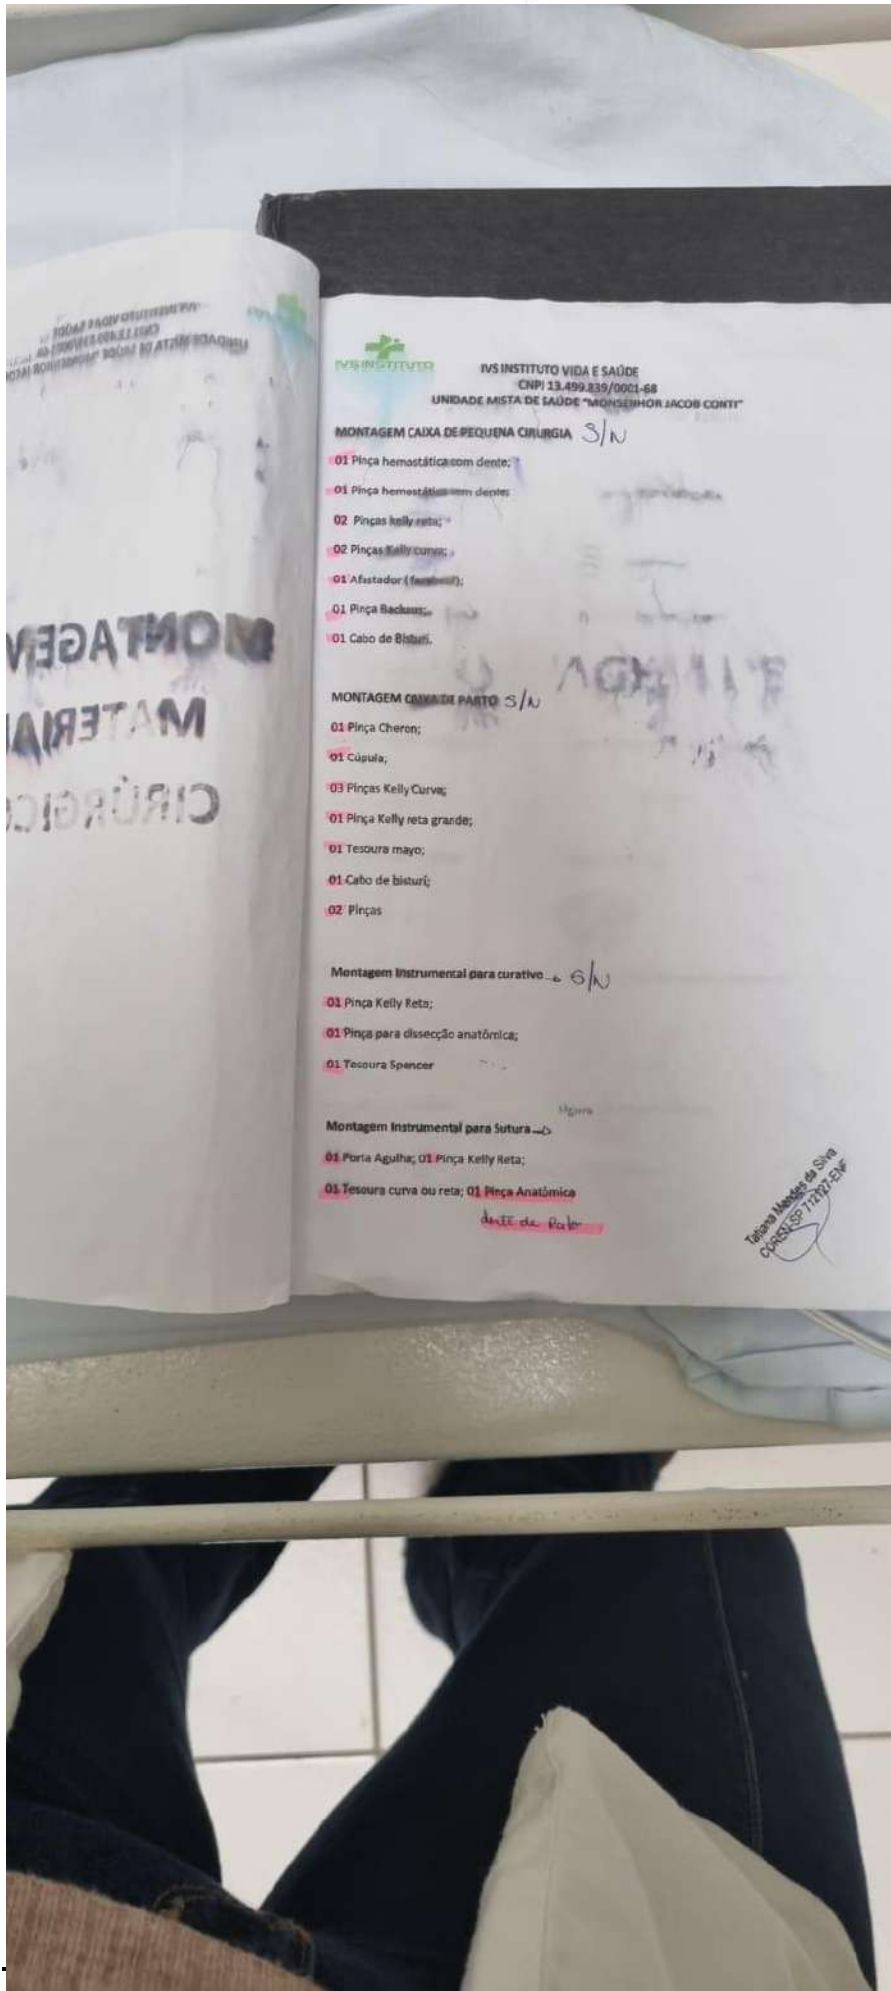 MONTAGEM
MATERIAL
CIRÚRGICO
IVS INSTITUTO
IVS INSTITUTO VIDA E SAÚDE
CNPJ 13.499.839/0001-68
UNIDADE MISTA DE SAÚDE "MONSENHOR JACOB CONTI"
MONTAGEM CAIXA DE PEQUENA CIRURGIA S/N
01 Pinça hemostática com dente;
01 Pinça hemostática sem dente;
02 Pinças kelly reta;
02 Pinças Kelly curva;
01 Afastador (farabeuf);
01 Pinça Backaus;
01 Cabo de Bisturi.
MONTAGEM CAIXA DE PARTO S/N
01 Pinça Cheron;
01 Cúpula;
03 Pinças Kelly Curva;
01 Pinça Kelly reta grande;
01 Tesoura mayo;
01 Cabo de bisturi;
02 Pinças
Montagem Instrumental para curativo → S/N
01 Pinça Kelly Reta;
01 Pinça para dissecção anatômica;
01 Tesoura Spencer
Montagem Instrumental para Sutura →
01 Porta Agulha; 01 Pinça Kelly Reta;
01 Tesoura curva ou reta; 01 Pinça Anatômica
dente de Rato
Tatiana Mendes da Silva
COREN-SP 712127-ENF